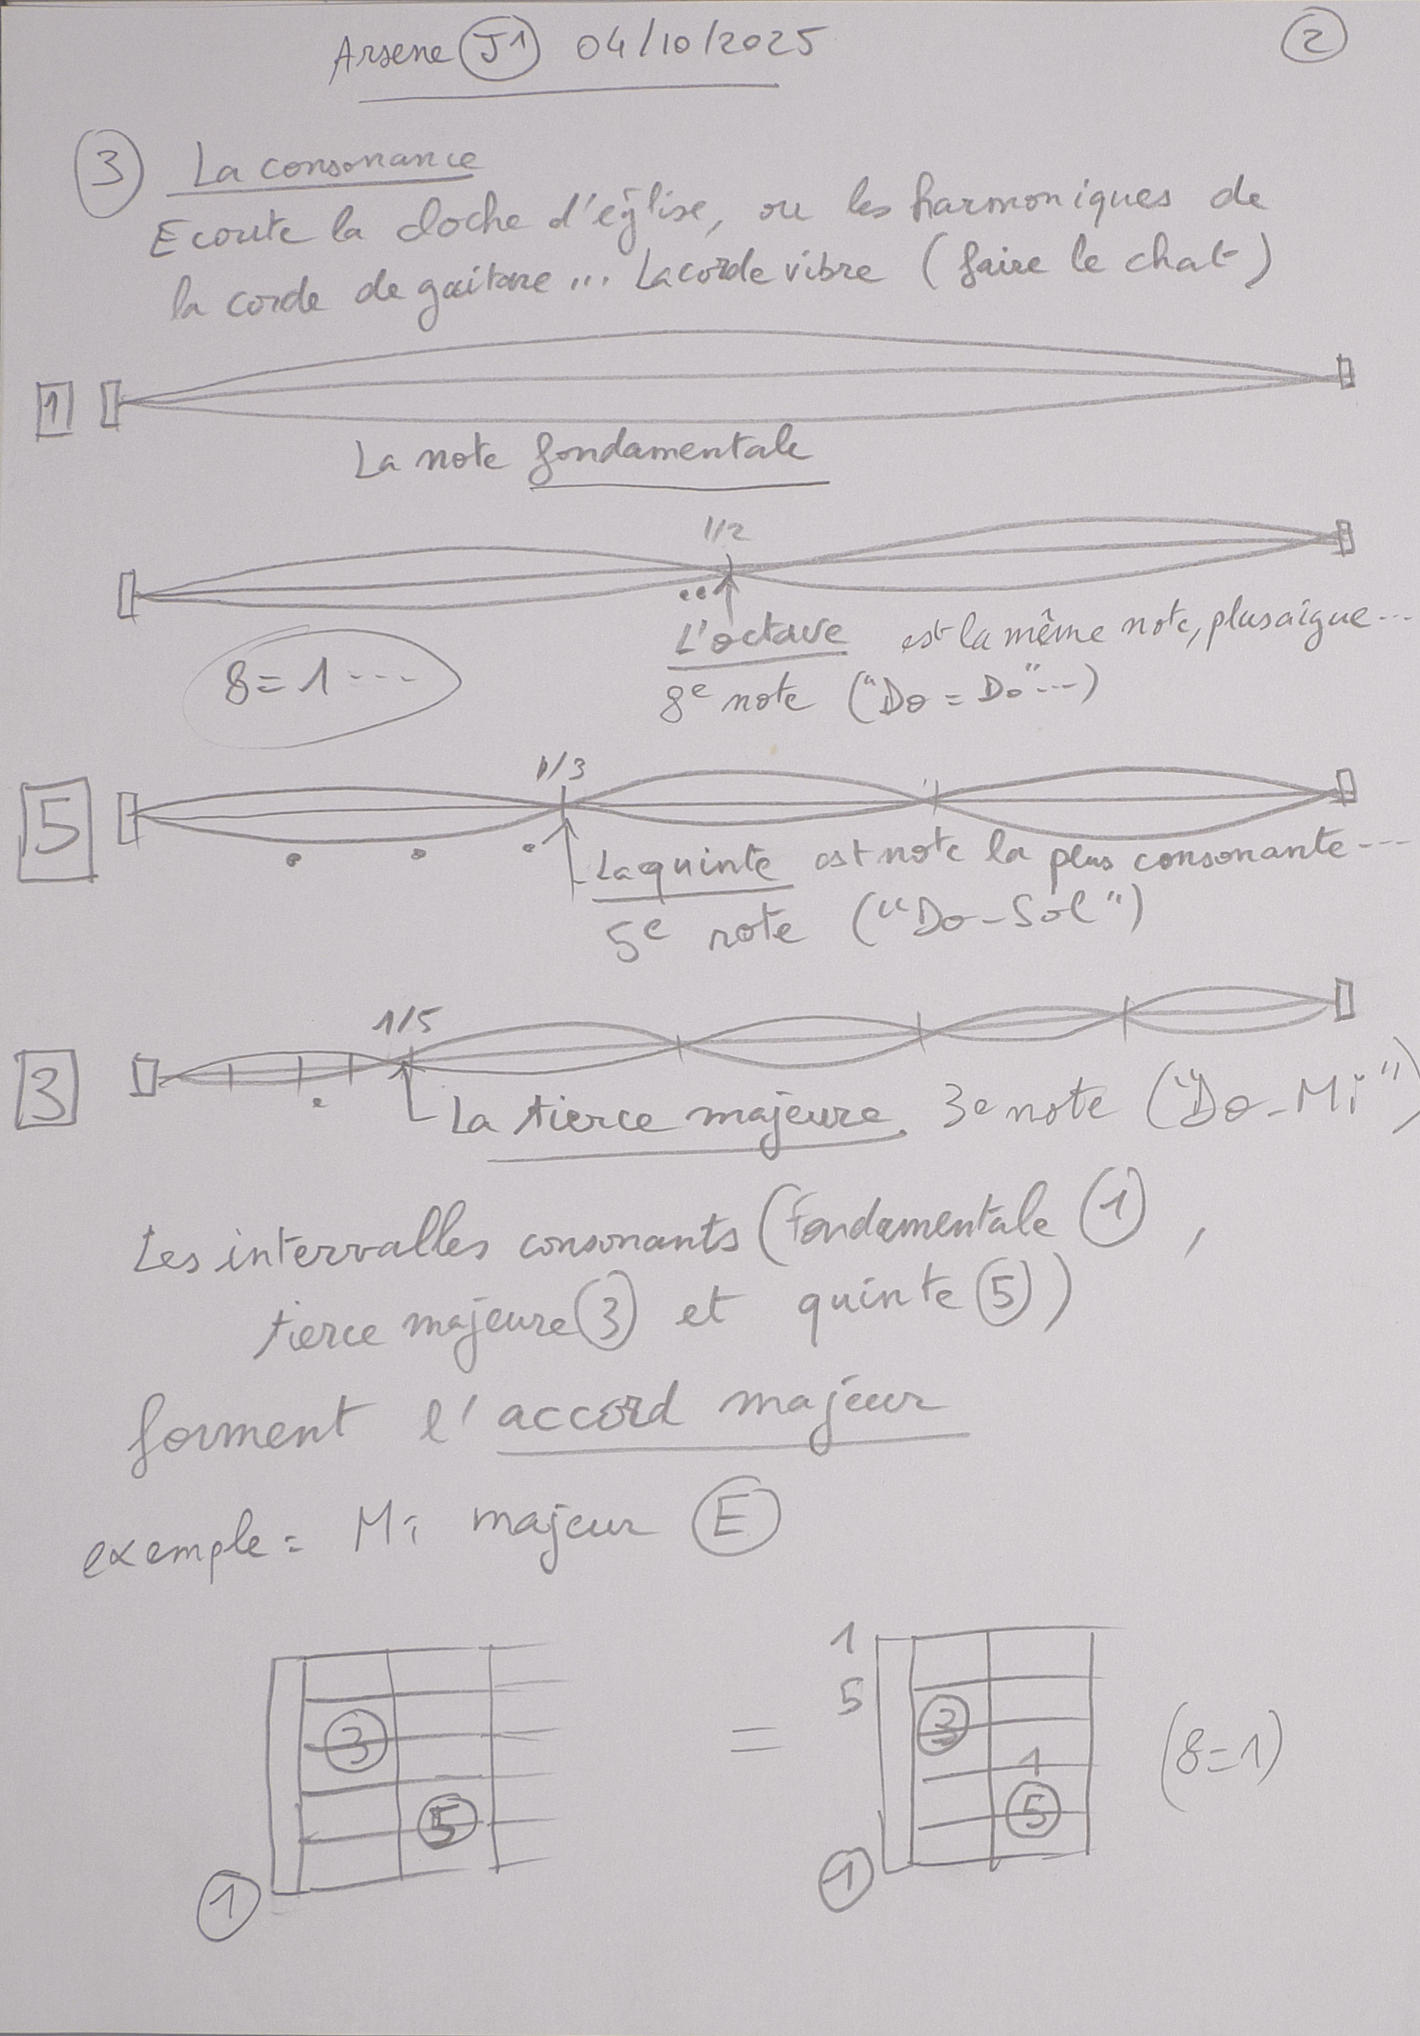 Arsene J1 04/10/2025
2
3 La consonance
Ecoute la cloche d'église, ou les harmoniques de
la corde de guitare... La corde vibre (faire le chat)
1
La note fondamentale
1/2
L'octave est la même note, plus aigue...
8 = 1 ...
8e note ("Do = Do"...)
1/3
5
La quinte est note la plus consonante...
5e note ("Do-Sol")
1/5
3
La tierce majeure. 3e note ("Do-Mi")
Les intervalles consonants (fondamentale 1,
tierce majeure 3 et quinte 5)
forment l'accord majeur
exemple = Mi majeur E
3
5
1
=
1
5
3
1
5
1
(8=1)